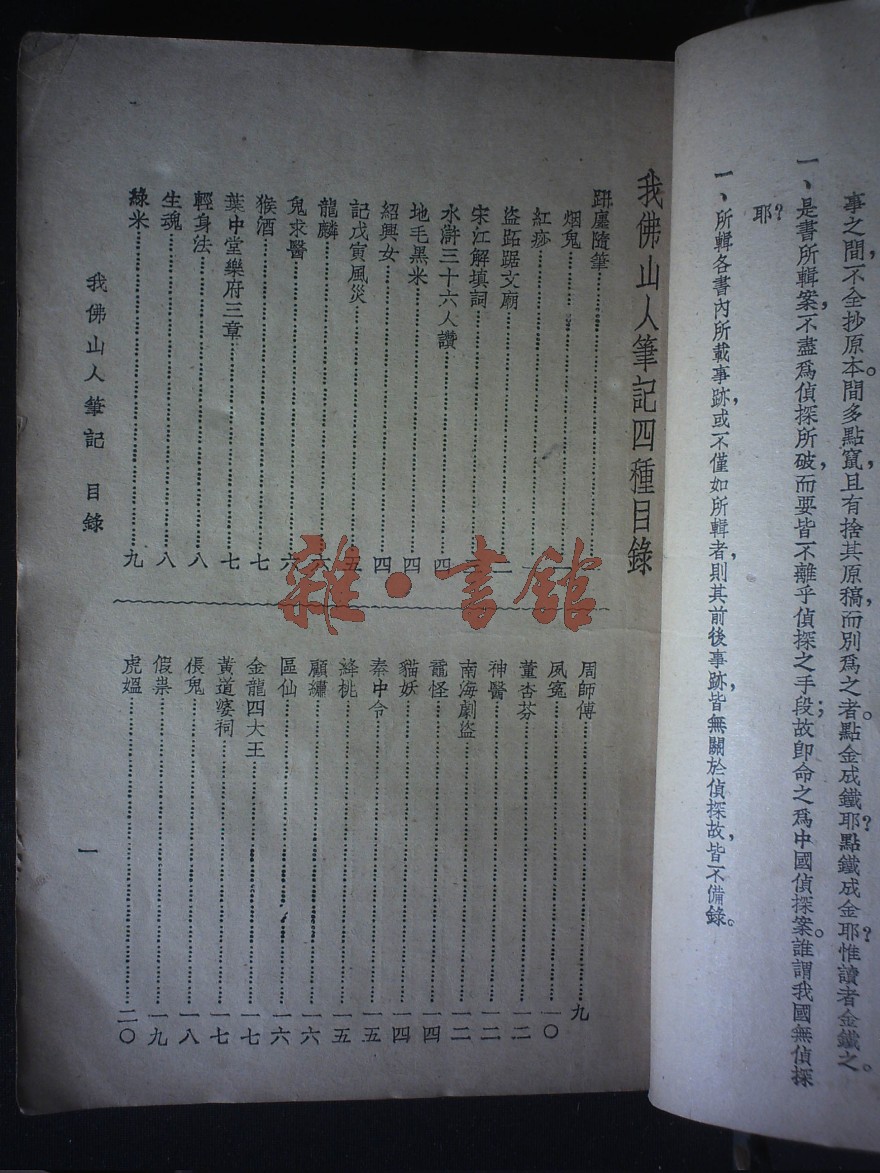 事之間，不全抄原本。間多點竄，且有捨其原稿，而別爲之者。點金成鐵耶？點鐵成金耶？惟讀者金鐵之。
一、是書所輯案，不盡爲偵探所破，而要皆不離乎偵探之手段；故卽命之爲中國偵探案。誰謂我國無偵探
耶？
一、所輯各書內所載事跡，或不僅如所輯者，則其前後事跡，皆無關於偵探，故皆不備錄。
我佛山人筆記四種目錄
趼廛隨筆
烟鬼……一
紅痧……一
盜跖踞文廟……二
宋江解填詞
水滸三十六人讚……四
地毛黑米……四
紹興女……四
記戊寅風災……五
龍麟……六
鬼求醫……六
猴酒……七
葉中堂樂府三章……七
輕身法……八
生魂……八
綠米……九
周師傅……九
夙冤……一〇
董杏芬……一二
神醫……一二
南海劇盜……一二
怪……一四
貓妖……一四
秦中令……一五
絳桃……一五
顧繡……一六
區仙……一六
金龍四大王……一七
黃道婆祠……一七
倀鬼……一八
假祟……一九
虎媼……二〇
我佛山人筆記 目錄
一
雜·書館